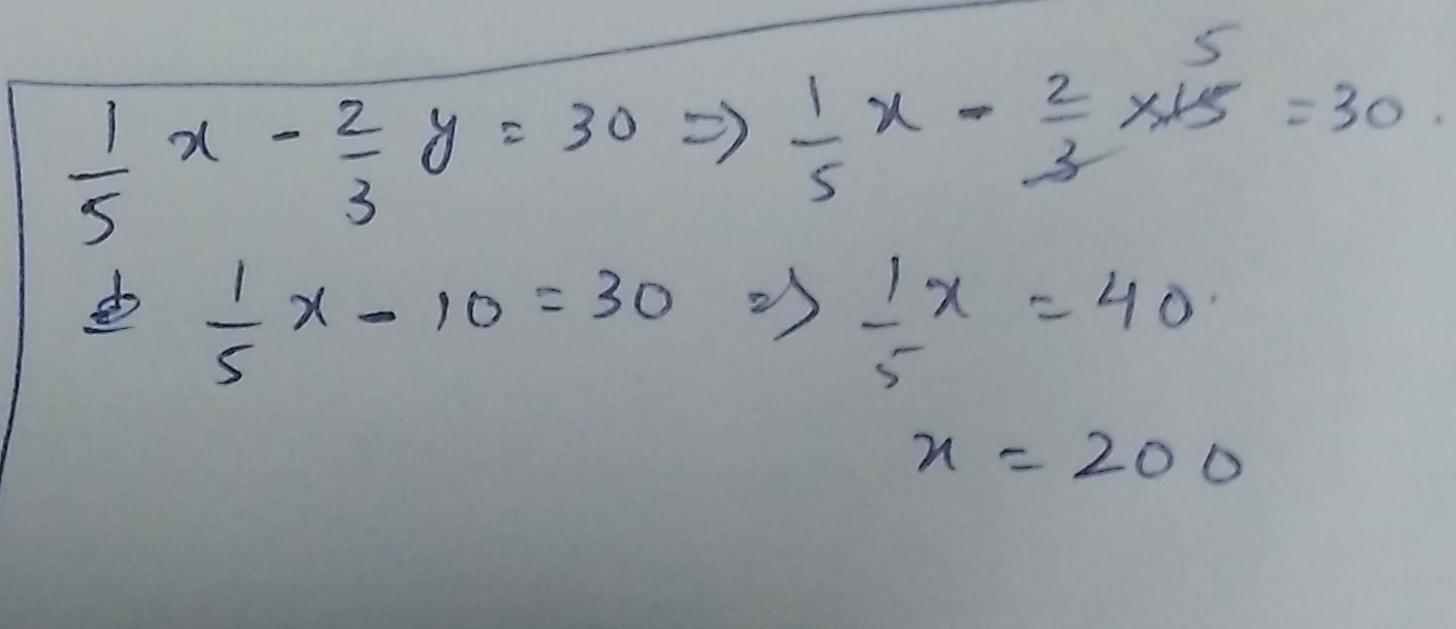 1/5 x - 2/3 y = 30 => 1/5 x - 2/3 × 15 5 = 30.
1/5 x - 10 = 30 => 1/5 x = 40.
x = 200